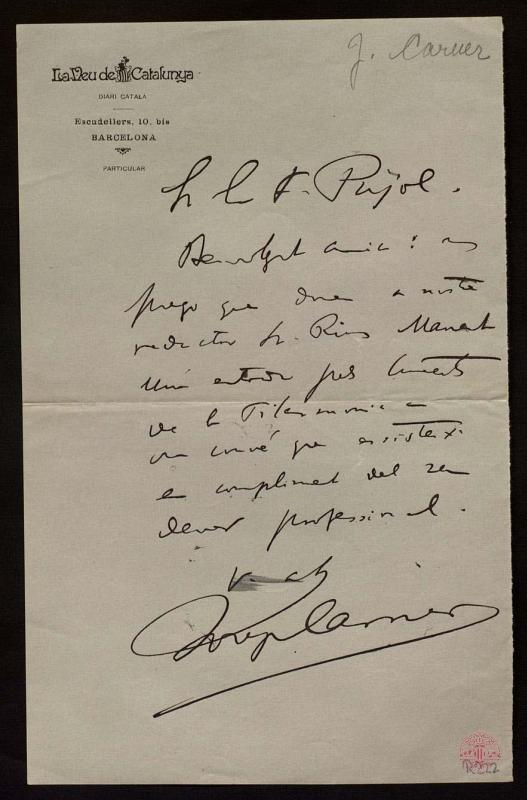 J. Carner
La Veu de Catalunya
DIARI CATALÀ
Escudellers, 10, bis
BARCELONA
PARTICULAR
Sr. F. Pujol.
Benvolgut amic: us
prego que doneu a nostre
redactor Sr. Rius Manent
una entrada pels concerts
de la Filarmonica a
on convé que assisteixi
en compliment del seu
dever professional.
Josep Carner
R222